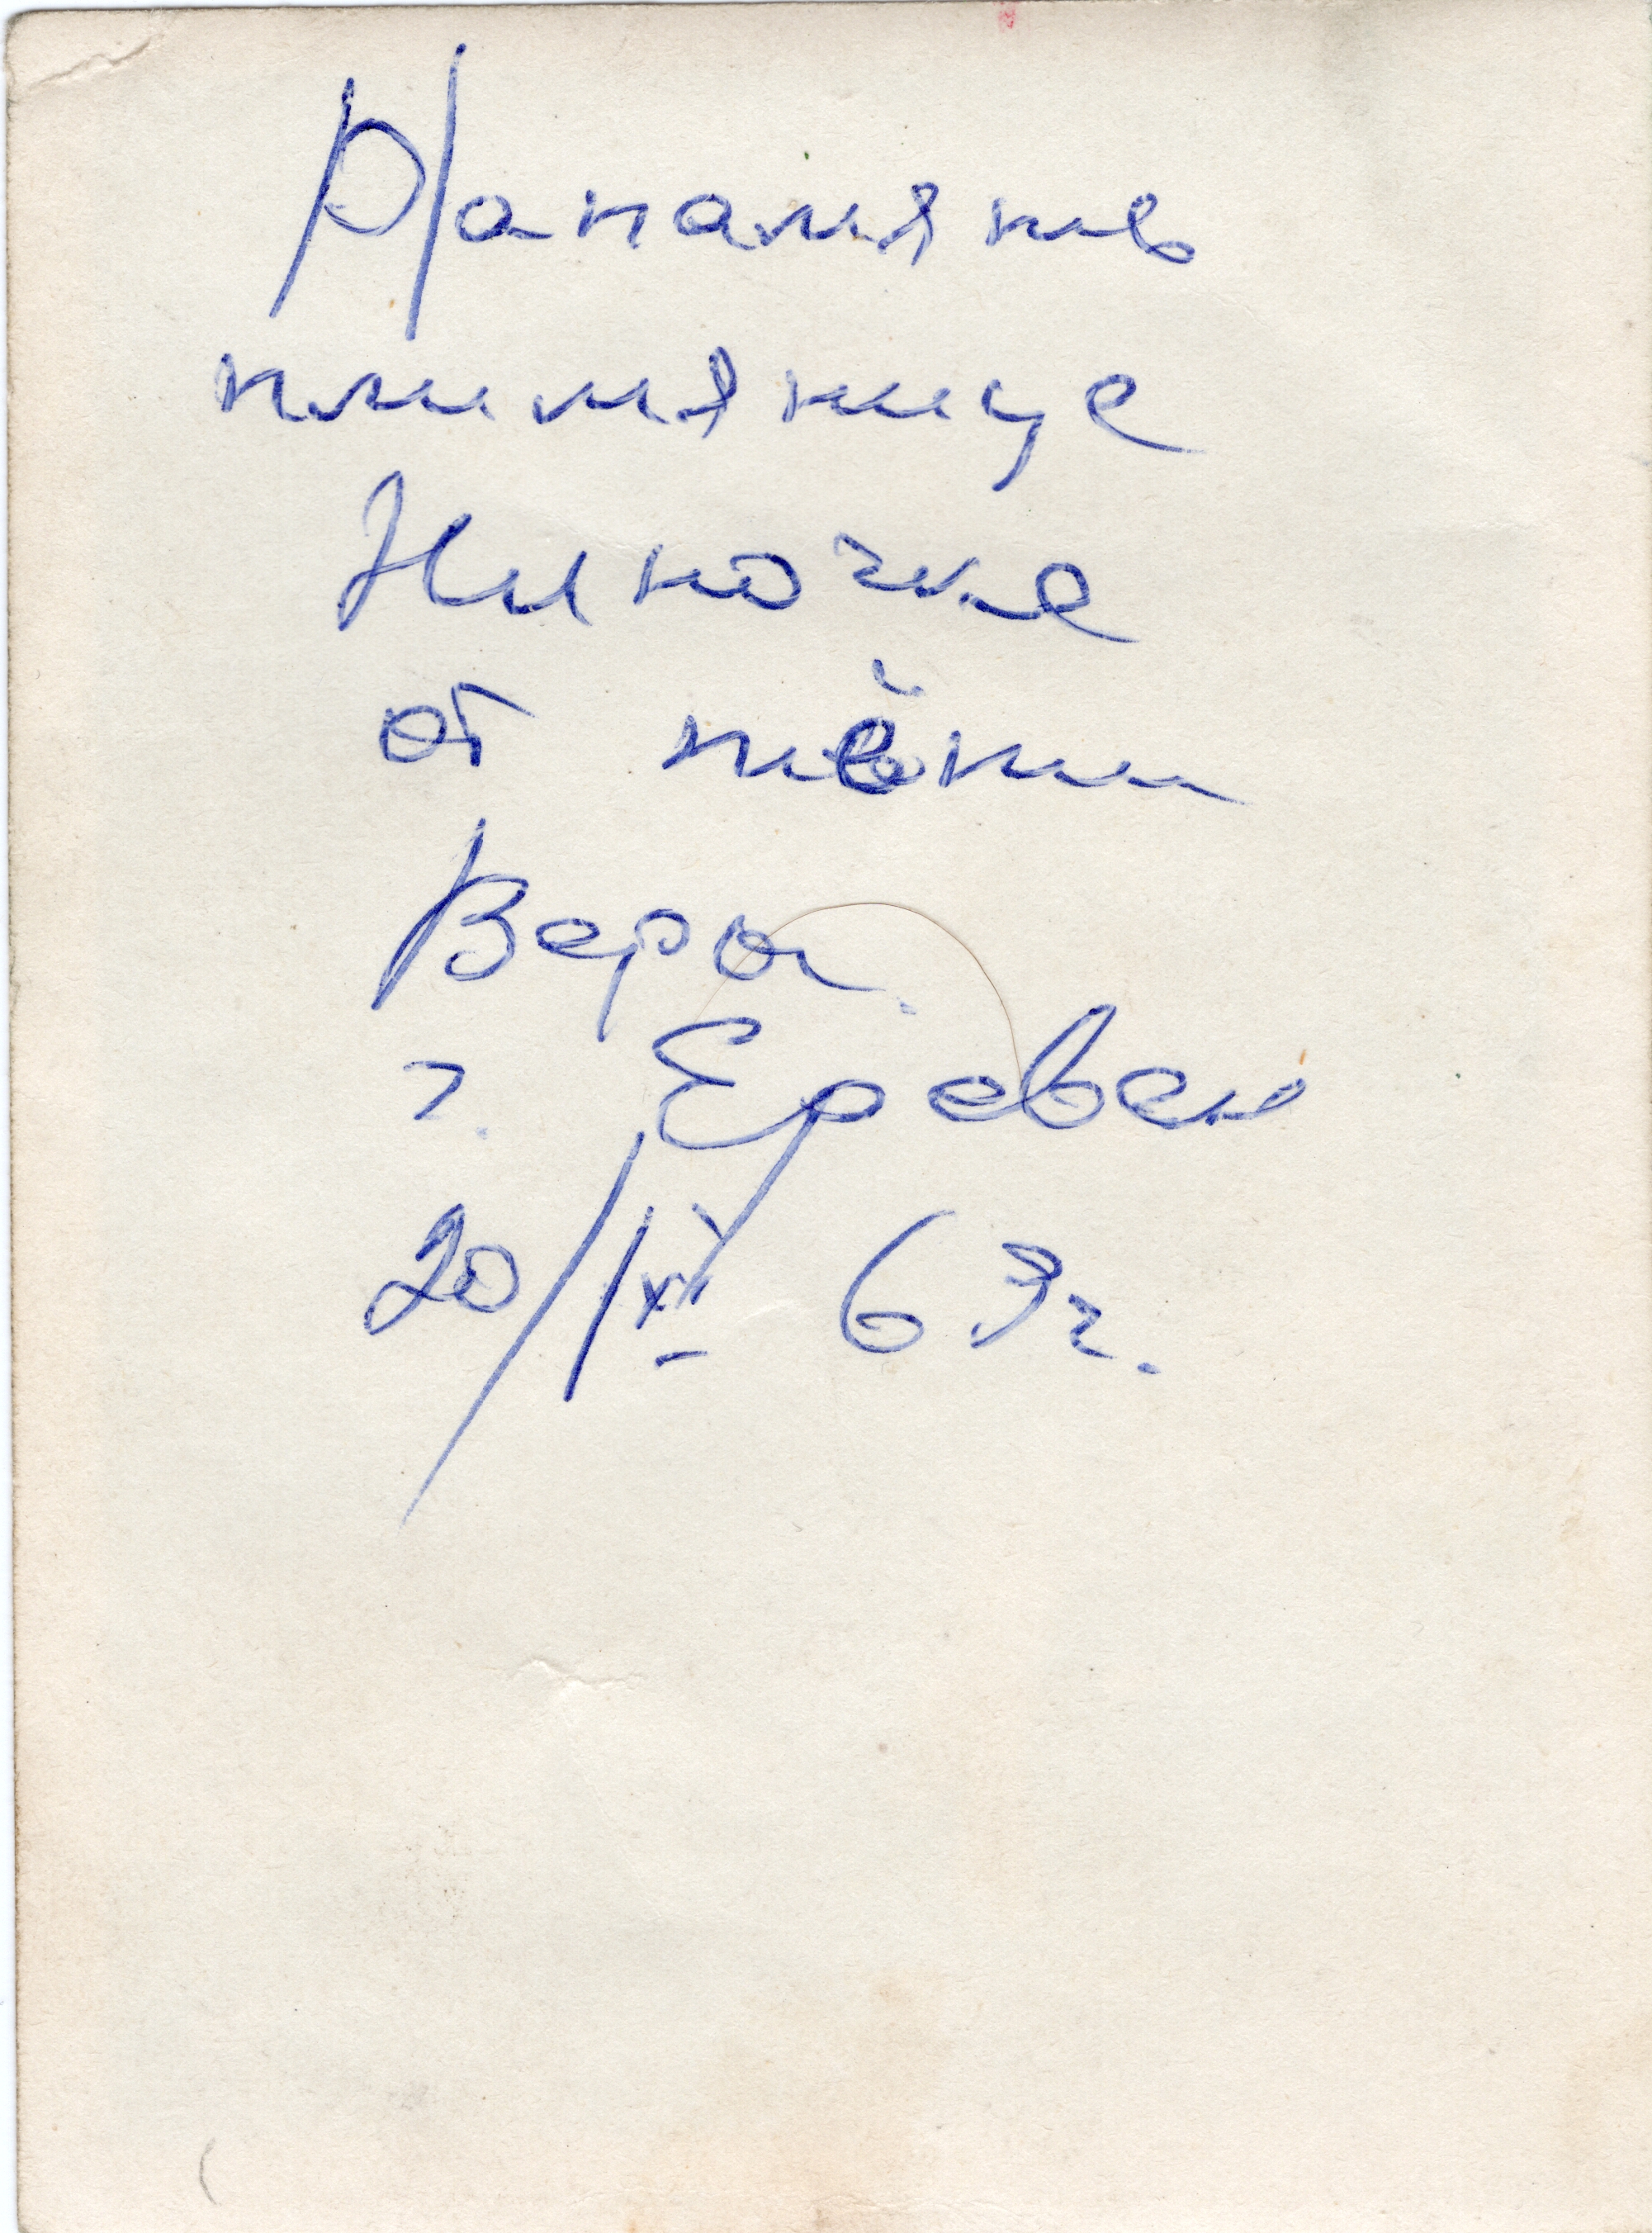 На память
племянице
Ниночке
от тёти
Веры.
г. Ереван
20/XII 63г.